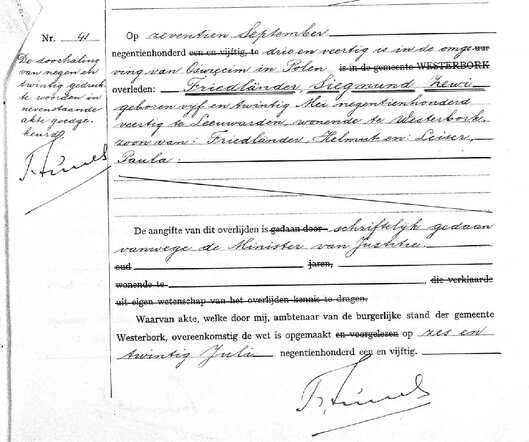 Nr. 41
De doorhaling
van negen en
twintig gedrukte
woorden in
nevenstaande
akte goedge-
keurd.
Op zeventien September
negentienhonderd een en vijftig, te drie en veertig is in de omge
ving van Oswiecim in Polen is in de gemeente WESTERBORK
overleden: Friedländer, Siegmund Zewi
geboren vijf en twintig Mei negentienhonderd
veertig te Leeuwarden, wonende te Westerbork,
zoon van: Friedländer, Helmut en: Leiser,
Paula.
De aangifte van dit overlijden is gedaan door schriftelijk gedaan
vanwege de Minister van Justitie.
oud jaren,
wonende te die verklaarde
uit eigen wetenschap van het overlijden kennis te dragen.
Waarvan akte, welke door mij, ambtenaar van de burgerlijke stand der gemeente
Westerbork, overeenkomstig de wet is opgemaakt en voorgelezen op zes en
twintig Juli negentienhonderd een en vijftig.